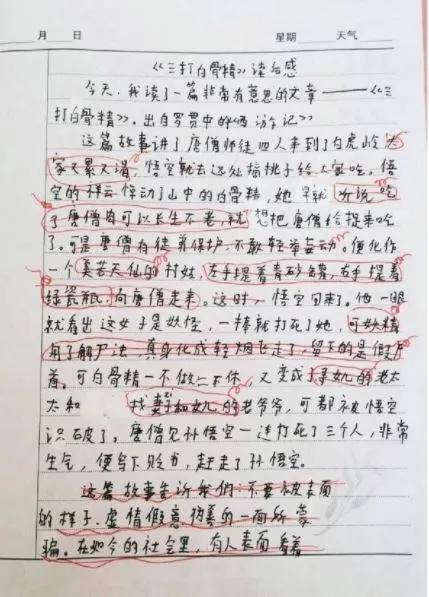 月 日 星期 天气
《三打白骨精》读后感
今天,我读了一篇非常有意思的文章——《三
打白骨精》。出自罗贯中的《西游记》
这篇故事讲了唐僧师徒四人来到了白虎岭,大
家又累又渴,悟空就去远处摘桃子给大家吃,悟
空的祥云惊动了山中的白骨精,她早就听说吃
了唐僧肉可以长生不老,就想把唐僧给捉来吃
了。可是唐僧有徒弟保护,不敢轻举妄动。便化作
一个美若天仙的村姑,左手提着青砂罐,右手提着
绿瓷瓶,向唐僧走来。这时,悟空回来了。他一眼
就看出这女子是妖怪,一棒就打死了她,可妖精
用了解尸法,真身化成轻烟飞走了,留下的是假尸
首。可白骨精一不做二不休,又变成了寻女儿的老太
太和 找妻子和女儿的老爷爷,可都被悟空
识破了。唐僧见孙悟空一连打死了三个人,非常
生气,便写下贬书,赶走了孙悟空。
这篇故事告诉我们:不要被表面
的样子,虚情假意伪善的一面所蒙
骗。在如今的社会里,有人表面看着